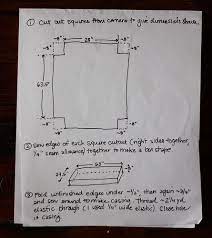 ① Cut out squares from corners to give dimensions shown.
8" 28" 8"
8" 8"
63.5"
8" 8"
8" 8"
② Sew edges of each square cutout (right sides together,
1/4" seam allowance) together to make a box shape.
③ Fold unfinished edges under ~1/4", then again ~3/4"
and sew around to make casing. Thread ~2 1/4 yd.
elastic through (I used 1/4" wide elastic). Close hole
in casing.